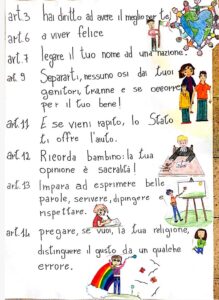 art.3 hai diritto ad avere il meglio per te,
art.6 a viver felice
art.7 legare il tuo nome ad una nazione.
art 9 Separarti, nessuno osi dai tuoi
genitori, tranne e se occorre
per il tuo bene!
art.11 E se vieni rapito, lo Stato
ti offre l'aiuto.
art.12 Ricorda bambino: la tua
opinione è sacralità!
art.13 Impara ad esprimere belle
parole, scrivere, dipingere e
rispettare.
art.14 pregare, se vuoi, la tua religione,
distinguere il giusto da un qualche
errore.